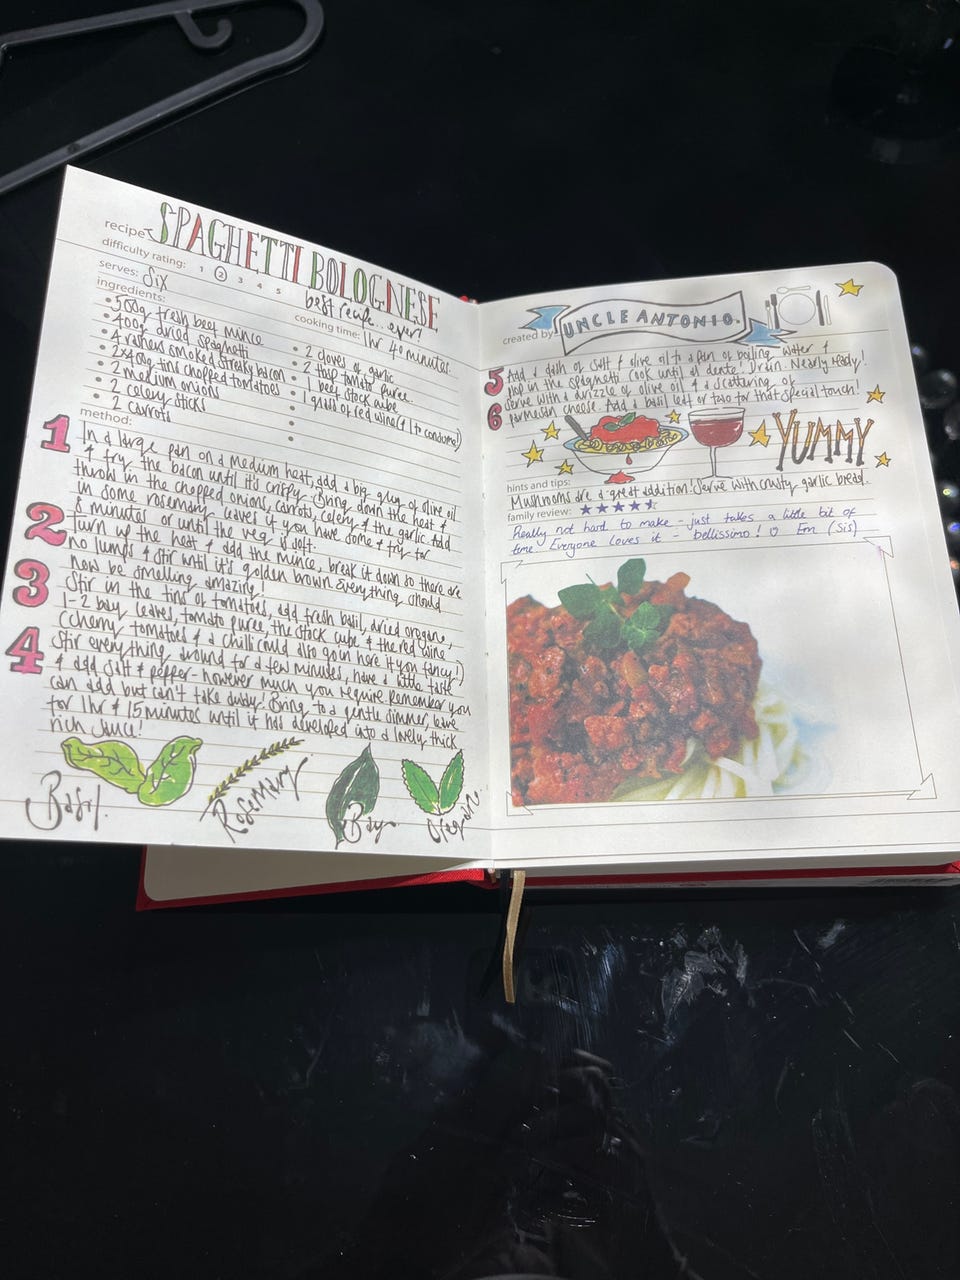 recipe SPAGHETTI BOLOGNESE
difficulty rating: 1 2 3 4 5
best recipe.. ever!
serves: Six
cooking time: 1hr 40 minutes.
ingredients:
• 500g fresh beef mince
• 400g dried spaghetti
• 4 rashers smoked streaky bacon
• 2x400g tins chopped tomatoes
• 2 medium onions
• 2 celery sticks
• 2 carrots
• 2 cloves of garlic
• 2 tbsp tomato puree
• 1 beef stock cube
• 1 glass of red wine (& 1 to consume!)
method:
1 In a large pan on a medium heat, add a big glug of olive oil
& fry the bacon until it's crispy. Bring down the heat &
throw in the chopped onions, carrots, celery & the garlic. Add
in some rosemary leaves if you have some & fry for
8 minutes or until the veg is soft.
2 Turn up the heat & add the mince, break it down so there are
no lumps & stir until it's golden brown. Everything should
now be smelling amazing!
3 Stir in the tins of tomatoes, add fresh basil, dried oregano,
1-2 bay leaves, tomato puree, the stock cube & the red wine.
(Cherry tomatoes & a chilli could also go in here if you fancy!)
4 Stir everything around for a few minutes, have a little taste
& add salt & pepper - however much you require. Remember you
can add but can't take away! Bring to a gentle simmer, leave
for 1hr & 15 minutes until it has developed into a lovely thick
rich sauce!
Basil.
Rosemary
Bay
Oregano
created by UNCLE ANTONIO.
5 Add a dash of salt & olive oil to a pan of boiling water &
pop in the spaghetti. Cook until al dente! Drain. Nearly ready!
6 Serve with a drizzle of olive oil & a scattering of
parmesan cheese. Add a basil leaf or two for that special touch!
YUMMY
hints and tips:
Mushrooms are a great addition! Serve with crusty garlic bread.
family review:
Really not hard to make - just takes a little bit of
time. Everyone loves it - bellissimo! Em (Sis)